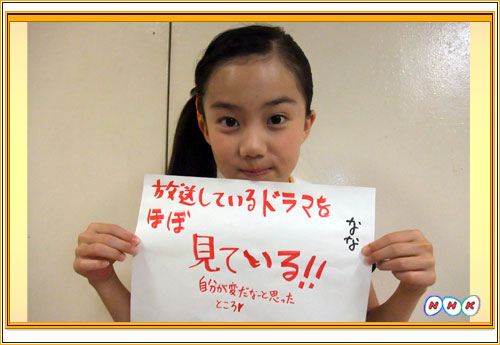 放送しているドラマを
ほぼ
見ている!!
自分が変だなーと思った
ところ♥
なな
NHK